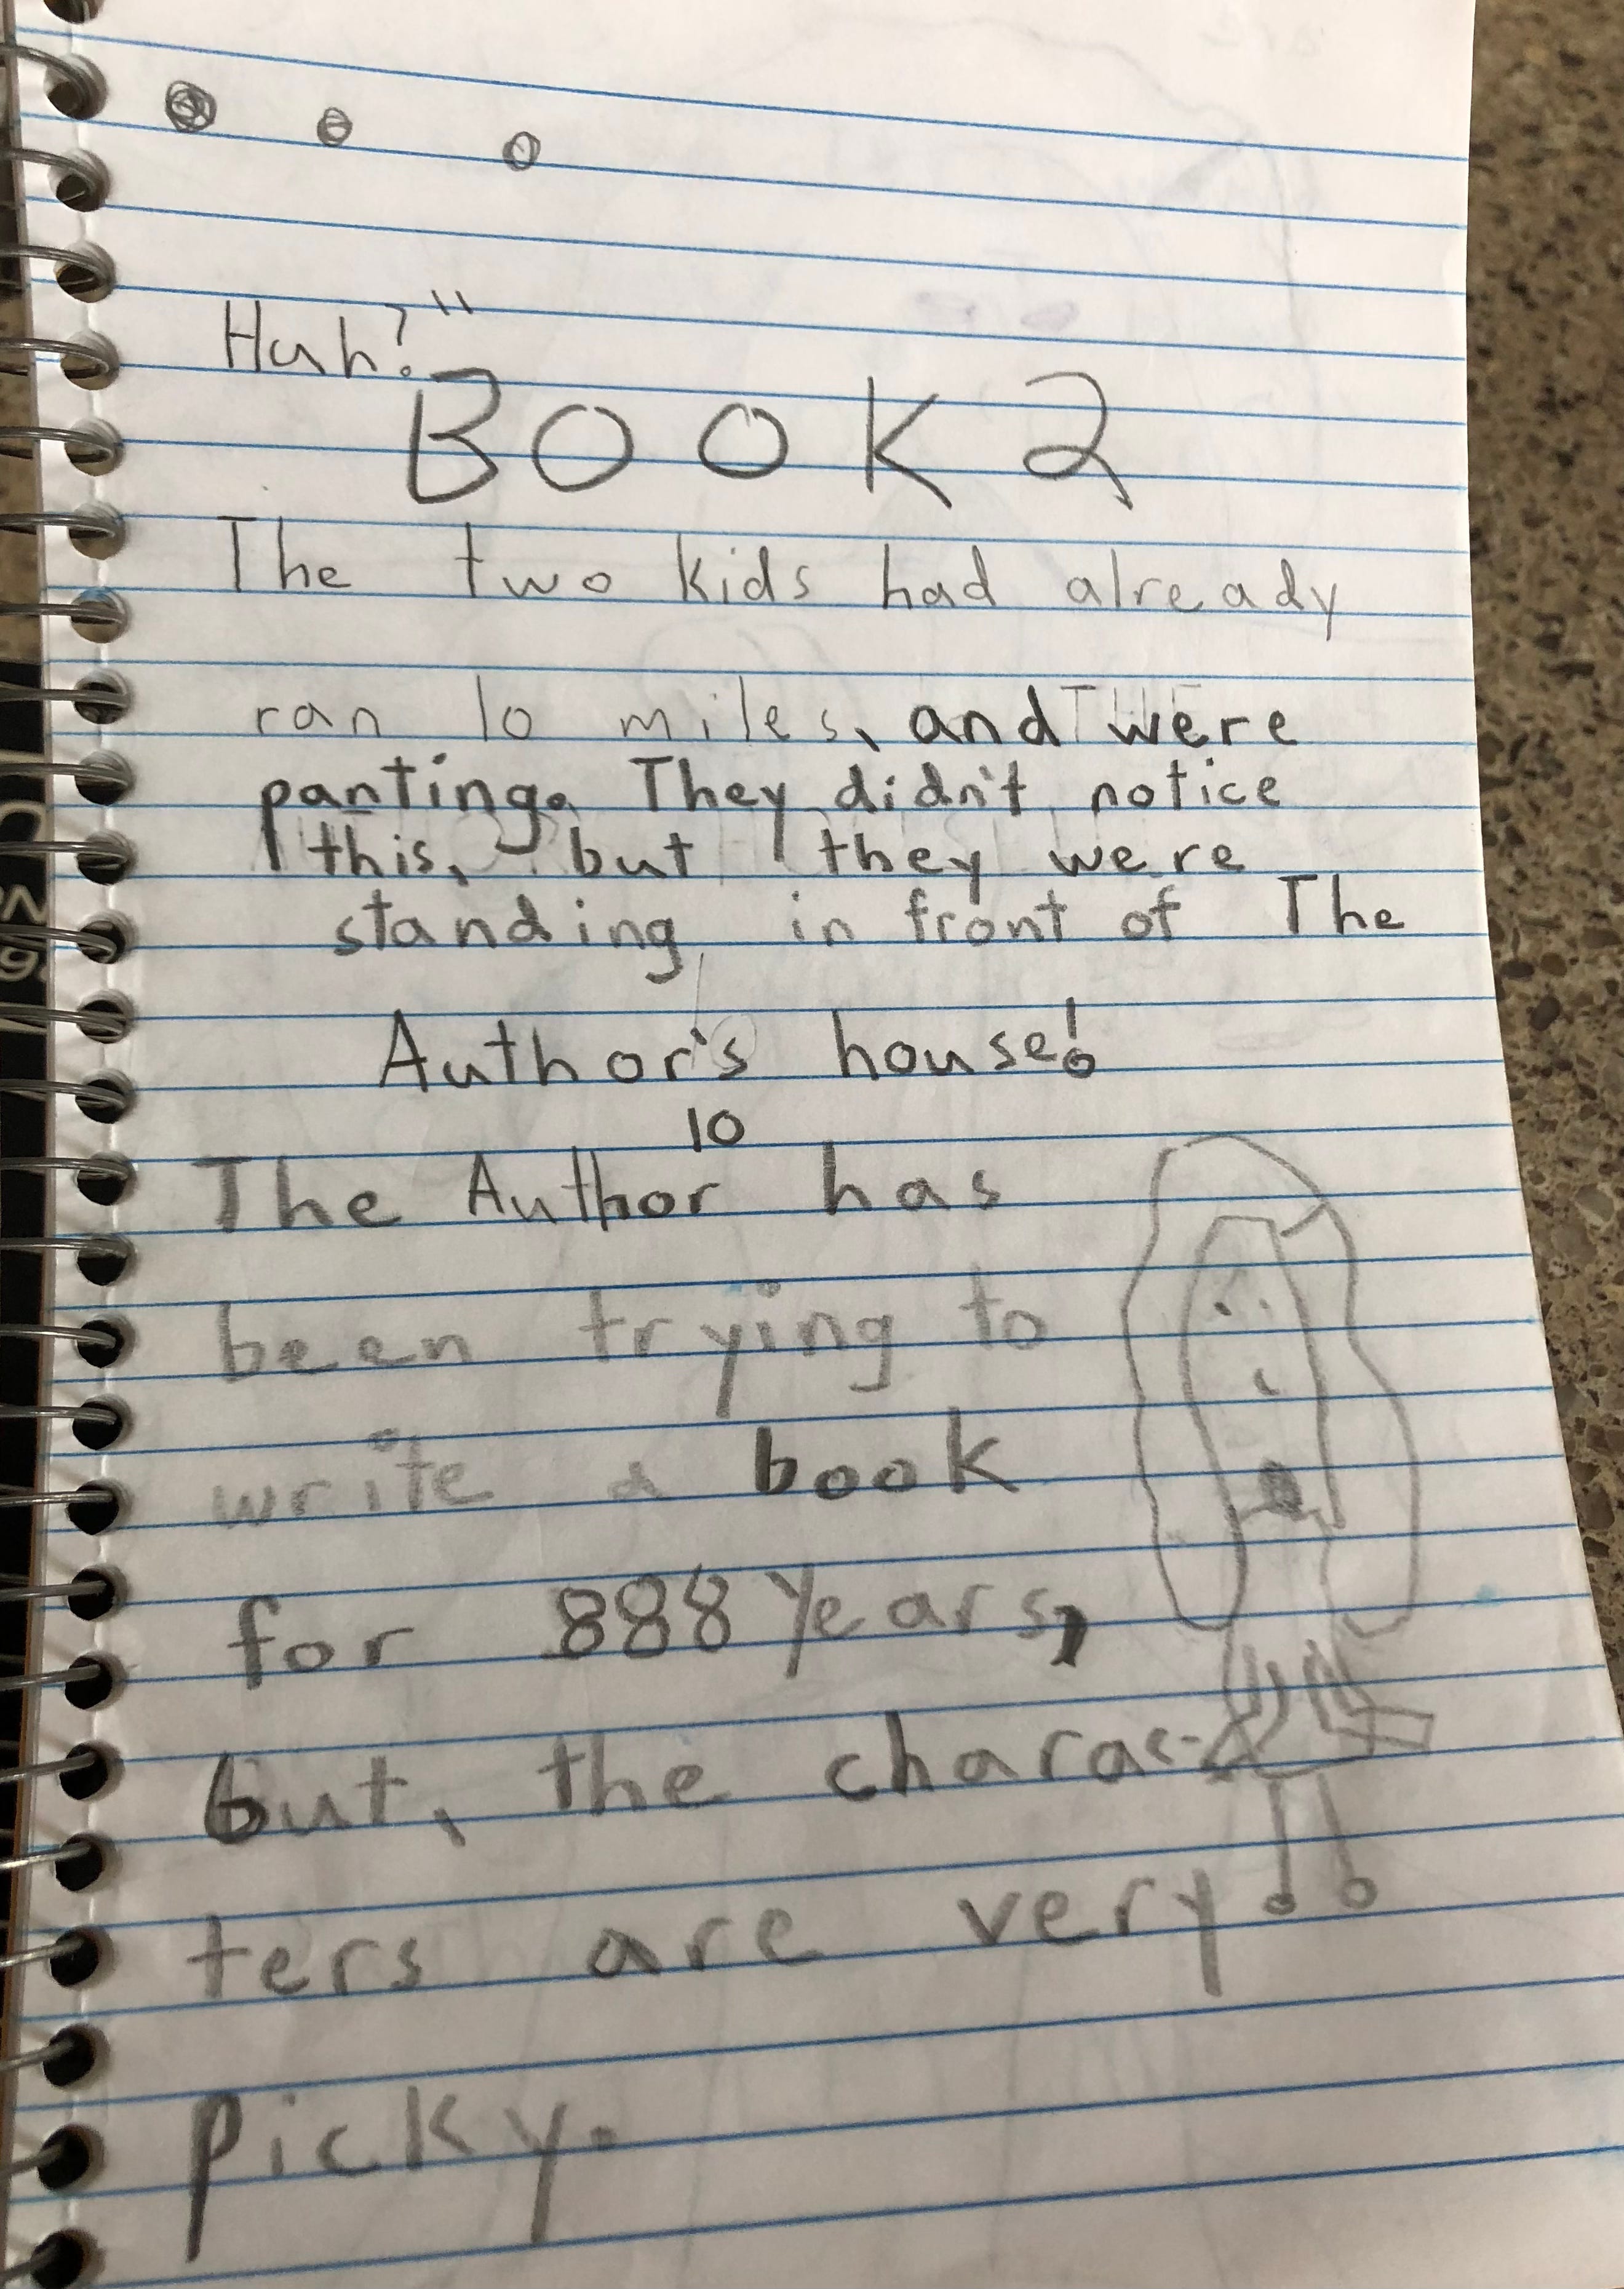 Huh?"
BOOK 2
The two kids had already
ran 10 miles, and were
panting. They didn't notice
this, but they were
standing in front of The
Author's house!
10
The Author has
been trying to
write a book
for 888 years,
but, the charac-
ters are very
picky.